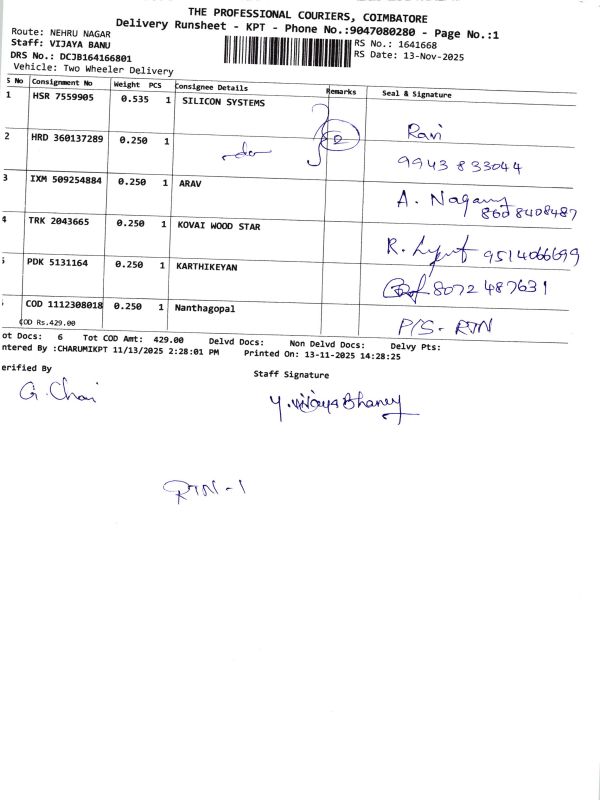 THE PROFESSIONAL COURIERS, COIMBATORE
Delivery Runsheet - KPT - Phone No.:9047080280 - Page No.:1
Route: NEHRU NAGAR
Staff: VIJAYA BANU
RS No.: 1641668
DRS No.: DCJB164166801
RS Date: 13-Nov-2025
Vehicle: Two Wheeler Delivery
S No Consignment No Weight PCS Consignee Details Remarks Seal & Signature
1 HSR 7559905 0.535 1 SILICON SYSTEMS
Ravi
2 HRD 360137289 0.250 1 -do- 2
9943833044
3 IXM 509254884 0.250 1 ARAV A. Nagamy
8608408487
4 TRK 2043665 0.250 1 KOVAI WOOD STAR
R. 9514066699
5 PDK 5131164 0.250 1 KARTHIKEYAN
8072487631
COD 1112308018 0.250 1 Nanthagopal
COD Rs.429.00 P/S - RTN
ot Docs: 6 Tot COD Amt: 429.00 Delvd Docs: Non Delvd Docs: Delvy Pts:
ntered By :CHARUMIKPT 11/13/2025 2:28:01 PM Printed On: 13-11-2025 14:28:25
erified By
Staff Signature
G. Chai
Y. Vijaya Bhaney
RTN - 1